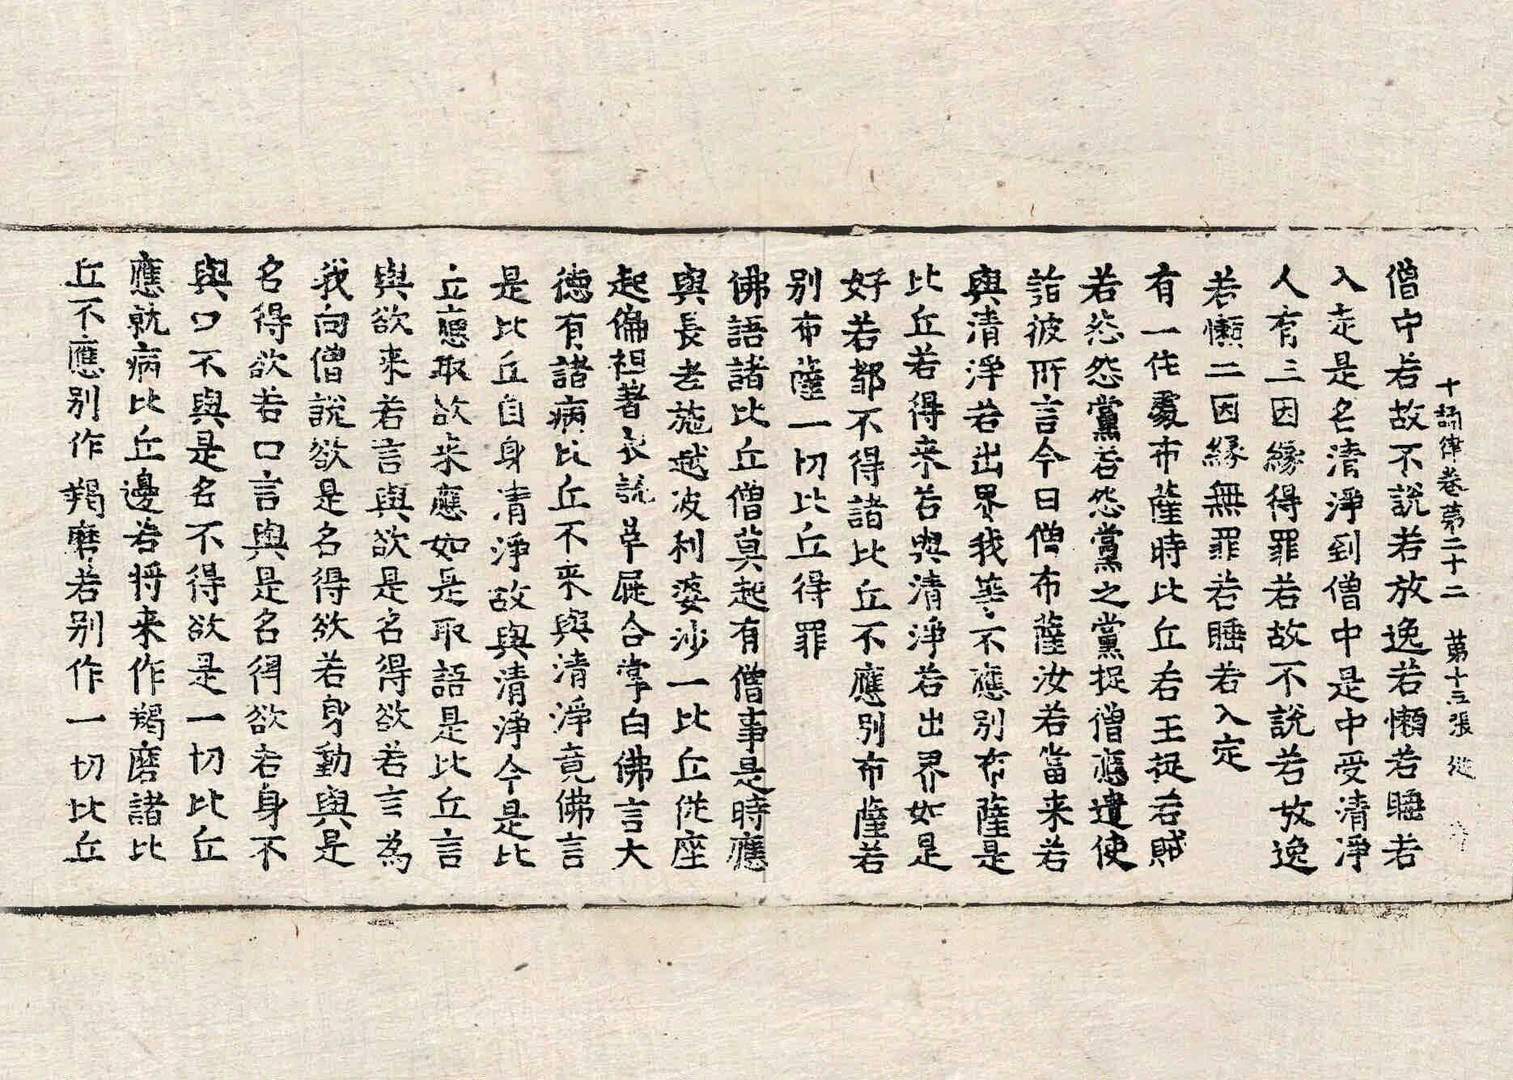 十誦律卷第二十二　第十三張　從
僧中若故不說若放逸若懶若睡若
入定是名清淨到僧中是中受清淨
人有三因緣得罪若故不說若放逸
若懶二因緣無罪若睡若入定
有一住處布薩時比丘若王捉若賊
若怨怨黨若怨黨之黨捉僧應遣使
詣彼所言今日僧布薩汝若當來若
與清淨若出界我等不應別布薩是
比丘若得来若與清淨若出界如是
好若都不得諸比丘不應別布薩若
別布薩一切比丘得罪
佛語諸比丘僧莫起有僧事是時應
與長老施越波利婆沙一比丘從座
起偏袒著衣說革屣合掌白佛言大
德有諸病比丘不来與清淨竟佛言
是比丘自身清淨故與清淨今是比
丘應取欲来應如是取語是比丘言
與欲来若言與欲是名得欲若言為
我向僧說欲是名得欲若身動與是
名得欲若口言與是名得欲若身不
與口不與是名不得欲是一切比丘
應就病比丘邊若将来作羯磨諸比
丘不應別作羯磨若別作一切比丘